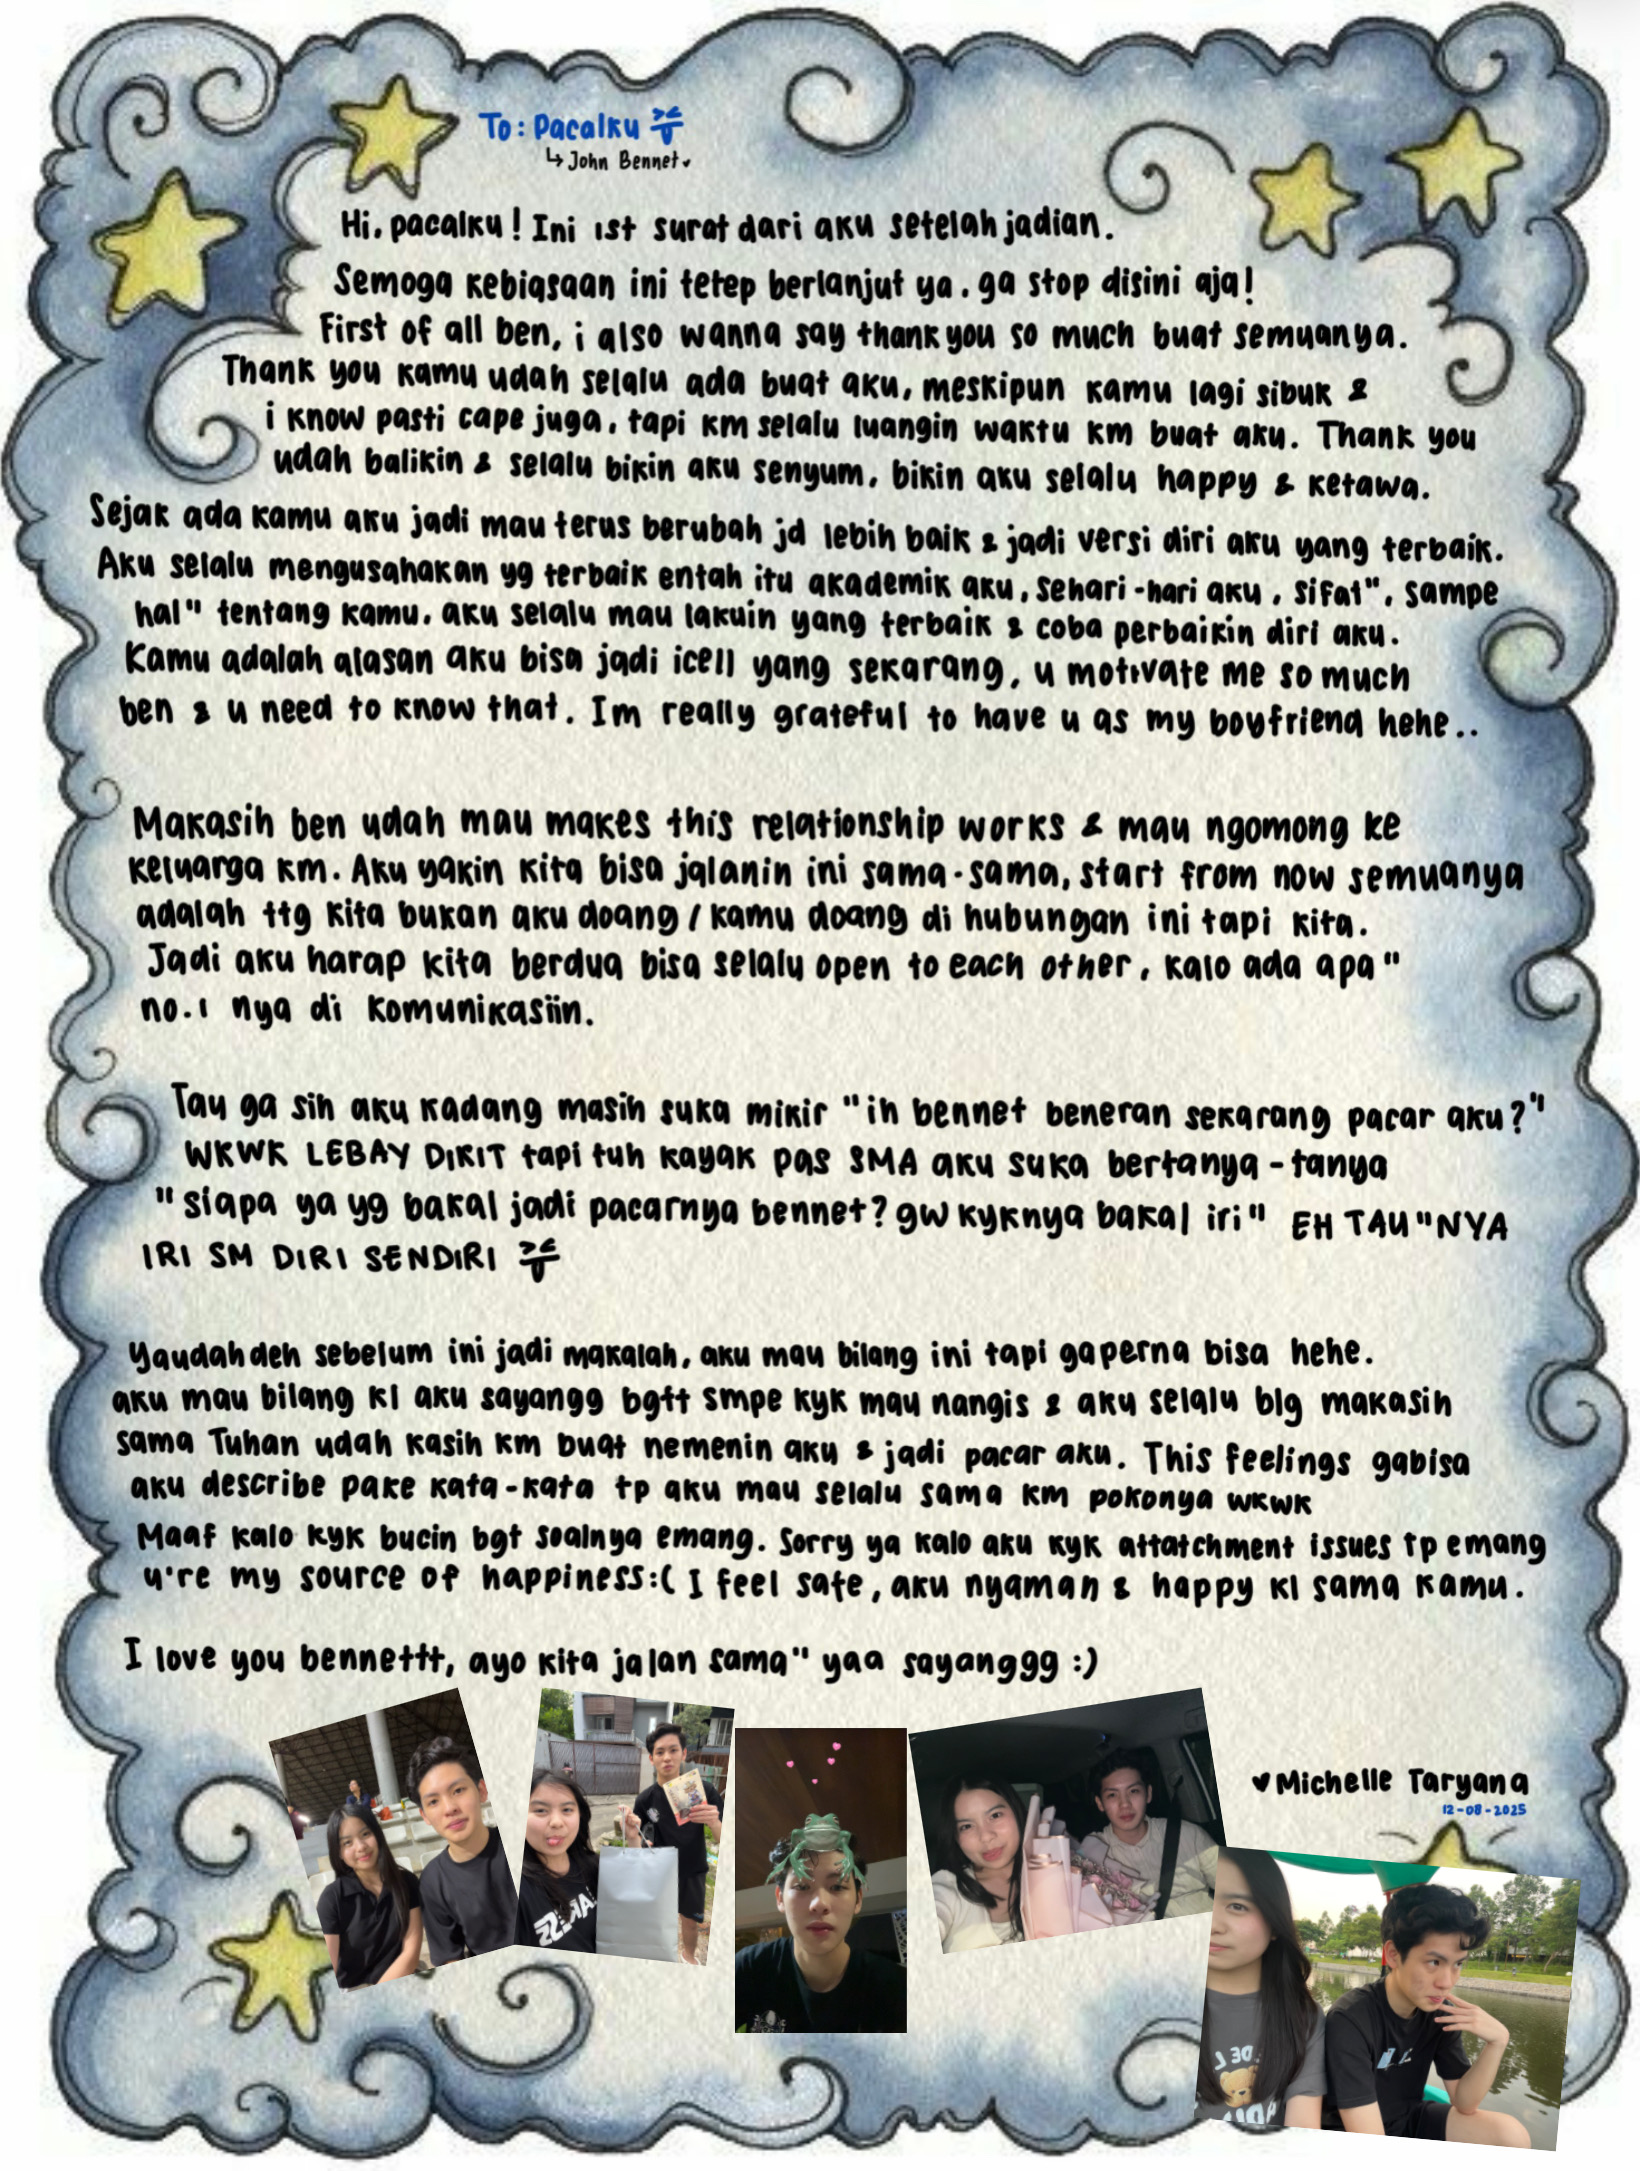 To: Pacalku
↳ John Bennet
Hi, pacalku! Ini 1st surat dari aku setelah jadian.
Semoga kebiasaan ini tetep berlanjut ya, ga stop disini aja!
First of all ben, i also wanna say thank you so much buat semuanya.
Thank you kamu udah selalu ada buat aku, meskipun kamu lagi sibuk &
i know pasti cape juga, tapi km selalu luangin waktu km buat aku. Thank you
udah balikin & selalu bikin aku senyum, bikin aku selalu happy & ketawa.
Sejak ada kamu aku jadi mau terus berubah jd lebih baik & jadi versi diri aku yang terbaik.
Aku selalu mengusahakan yg terbaik entah itu akademik aku, sehari-hari aku, sifat", sampe
hal" tentang kamu, aku selalu mau lakuin yang terbaik & coba perbaikin diri aku.
Kamu adalah alasan aku bisa jadi icell yang sekarang, u motivate me so much
ben & u need to know that. Im really grateful to have u as my boyfriend hehe..
Makasih ben udah mau makes this relationship works & mau ngomong ke
keluarga km. Aku yakin kita bisa jalanin ini sama-sama, start from now semuanya
adalah ttg kita bukan aku doang / kamu doang di hubungan ini tapi kita.
Jadi aku harap kita berdua bisa selalu open to each other, kalo ada apa"
no.1 nya di komunikasiin.
Tau ga sih aku kadang masih suka mikir "ih bennet beneran sekarang pacar aku?"
WKWK LEBAY DIKIT tapi tuh kayak pas SMA aku suka bertanya-tanya
"siapa ya yg bakal jadi pacarnya bennet? gw kyknya bakal iri" EH TAU"NYA
IRI SM DIRI SENDIRI
Yaudahdeh sebelum ini jadi makalah, aku mau bilang ini tapi gaperna bisa hehe.
aku mau bilang kl aku sayangg bgtt smpe kyk mau nangis & aku selalu blg makasih
sama Tuhan udah kasih km buat nemenin aku & jadi pacar aku. This feelings gabisa
aku describe pake kata-kata tp aku mau selalu sama km pokonya wkwk
Maaf kalo kyk bucin bgt soalnya emang. Sorry ya kalo aku kyk attatchment issues tp emang
u're my source of happiness:( I feel safe, aku nyaman & happy kl sama kamu.
I love you bennettt, ayo kita jalan sama" yaa sayanggg :)
♥Michelle Taryana
12-08-2025